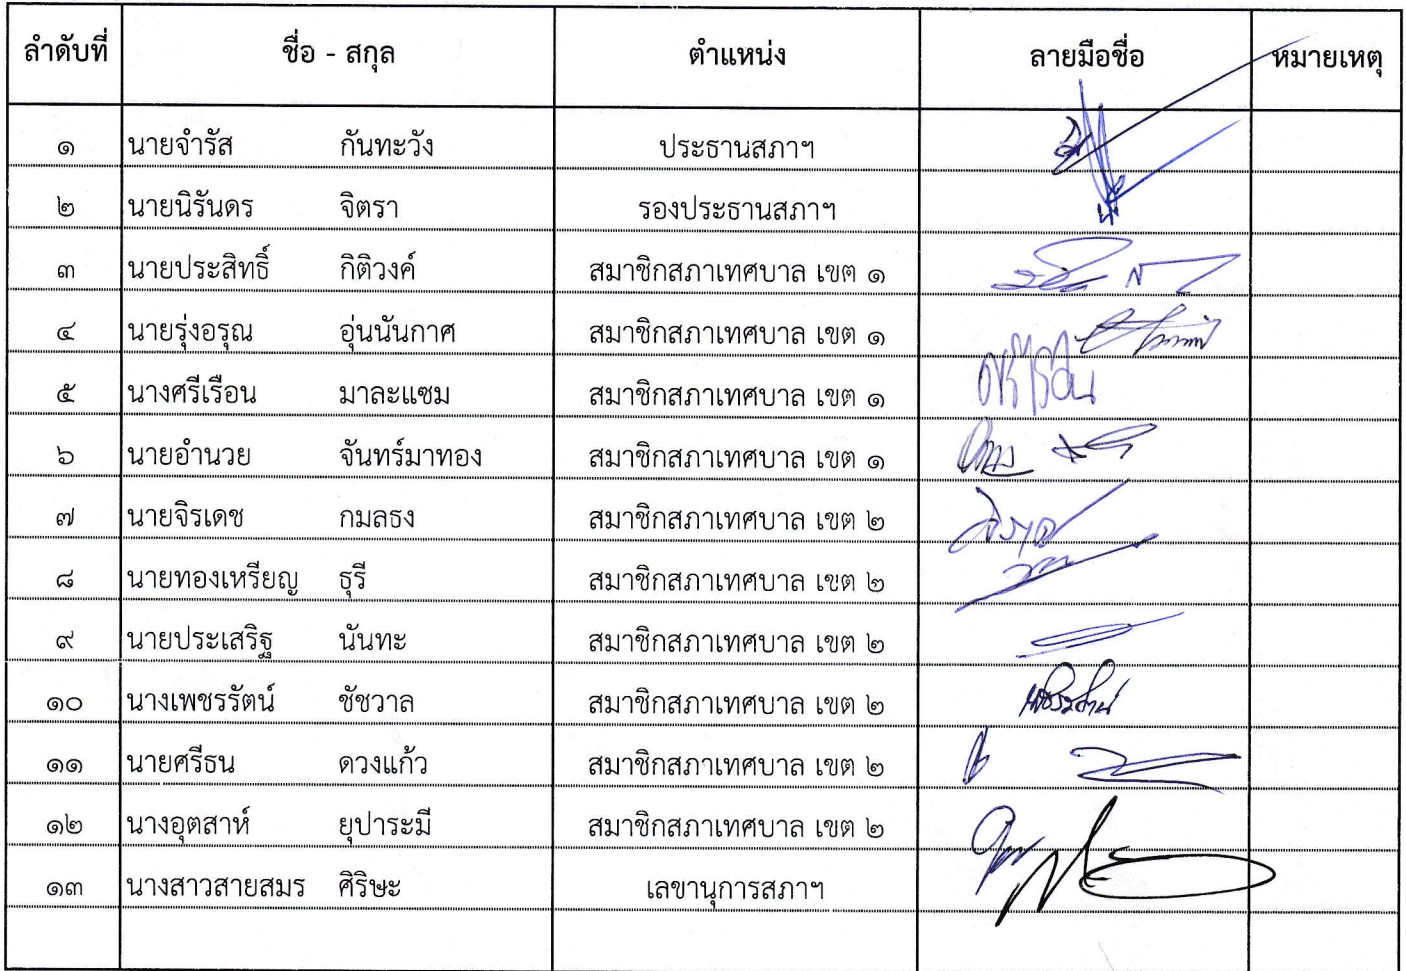 ลำดับที่ ชื่อ - สกุล ตำแหน่ง ลายมือชื่อ หมายเหตุ
๑ นายจำรัส กันทะวัง ประธานสภาฯ
๒ นายนิรันดร จิตรา รองประธานสภาฯ
๓ นายประสิทธิ์ กิติวงค์ สมาชิกสภาเทศบาล เขต ๑
๔ นายรุ่งอรุณ อุ่นนันกาศ สมาชิกสภาเทศบาล เขต ๑
๕ นางศรีเรือน มาละแซม สมาชิกสภาเทศบาล เขต ๑
๖ นายอำนวย จันทร์มาทอง สมาชิกสภาเทศบาล เขต ๑
๗ นายจิรเดช กมลธง สมาชิกสภาเทศบาล เขต ๒
๘ นายทองเหรียญ ธุรี สมาชิกสภาเทศบาล เขต ๒
๙ นายประเสริฐ นันทะ สมาชิกสภาเทศบาล เขต ๒
๑๐ นางเพชรรัตน์ ชัชวาล สมาชิกสภาเทศบาล เขต ๒
๑๑ นายศรีธน ดวงแก้ว สมาชิกสภาเทศบาล เขต ๒
๑๒ นางอุตสาห์ ยุปาระมี สมาชิกสภาเทศบาล เขต ๒
๑๓ นางสาวสายสมร ศิริษะ เลขานุการสภาฯ